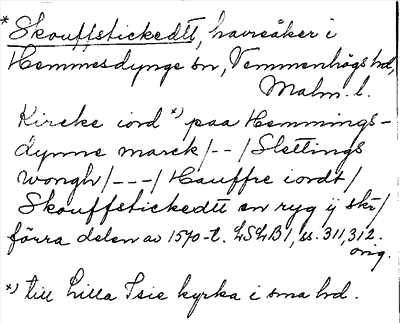 * Skouffstickedtt, havreåker i
Hemmesdynge sn, Vemmenhögs hd,
Malm. l.
Kircke iord *) paa Hemmings-
dynne marck/--/Slettings
wongh/---/Hauffre iordt/
Skouffstickedtt en ryg ij skr/
förra delen av 1570-t. LSLB 1, ss. 311, 312.
orig.
*) till Lilla Isie kyrka i sma hd.